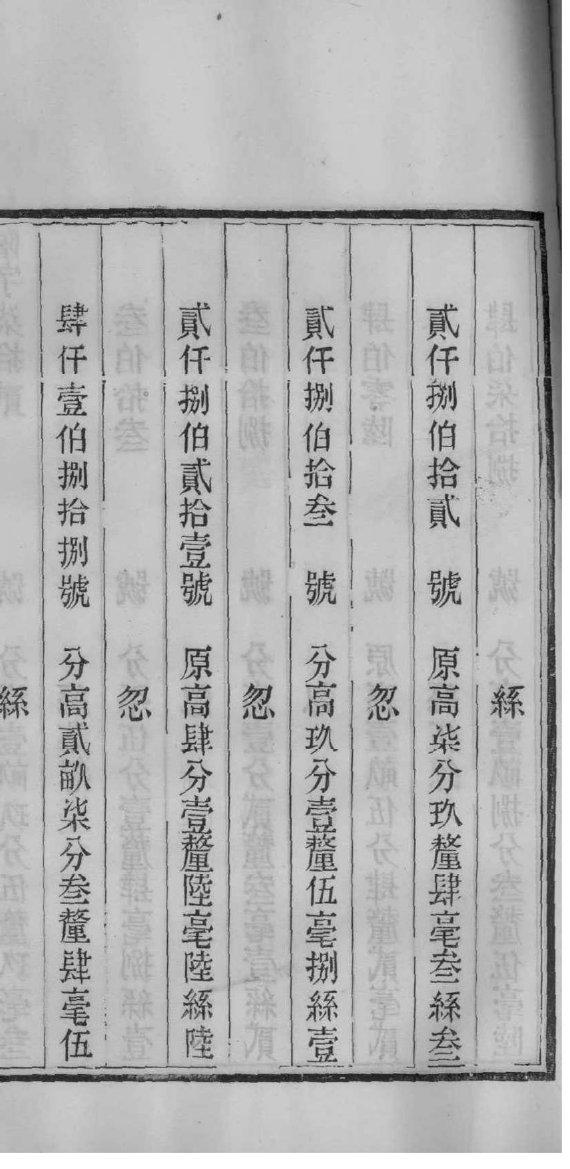 絲
貳仟捌伯拾貳號 原高柒分玖釐肆毫叁絲叁
忽
貳仟捌伯拾叁號 分高玖分壹釐伍毫捌絲壹
忽
貳仟捌伯貳拾壹號 原高肆分壹釐陸毫陸絲陸
忽
肆仟壹伯捌拾捌號 分高貳畝柒分叁釐肆毫伍
絲